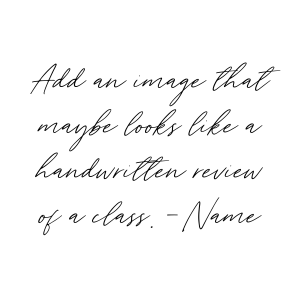 Add an image that
maybe looks like a
handwritten review
of a class. - Name